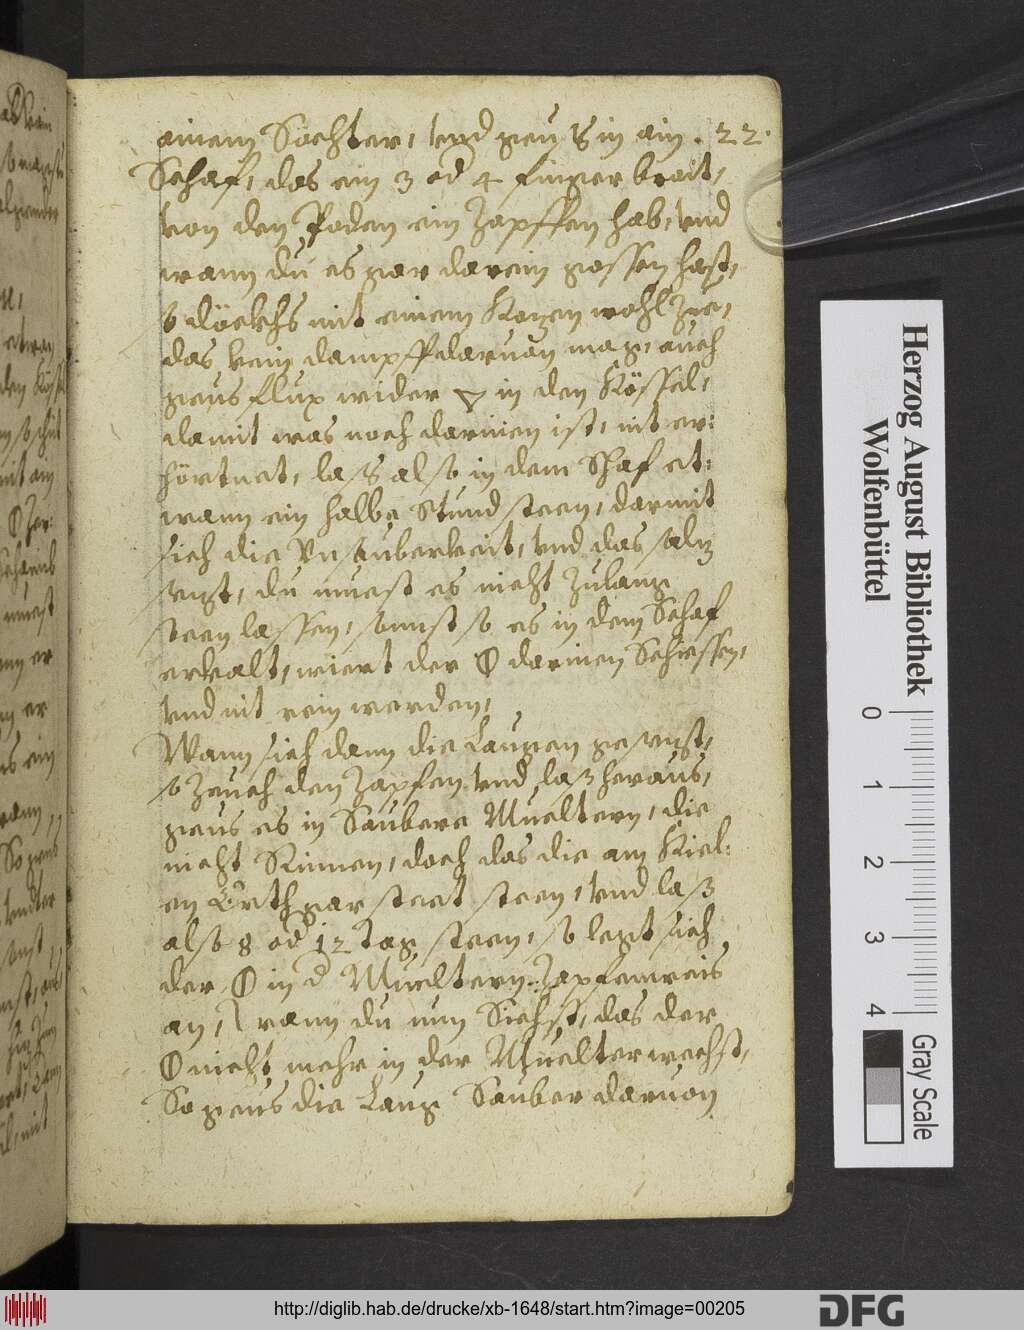 einem Söchter, vnd geuß in ain. 22.
Schaf, das ein 3 od 4 finger breit,
von den Poden ein Zapffen hab, vnd
wann du es gar darein gossen hast,
so döckhs mit einem Kozen wohl Zue,
das kein dampff daruon mag, auch
geus flux wider ▽ in den Kössel,
damit was noch darinen ist, nit er:
hörtnet, laß also in dem Schaf et:
wann ein halbe Stund steen, darmit
sich die Vnsauberkeit, vnd das salz
sezt, du muest es nicht Zulang
steen lassen, sonnst so es in dem Schaf
erkalt, wiert der ⦶ darinen Schiessen,
vnd nit rein werden,
Wann sich dann die Laugen gesezst,
so Zeuch den Zapfen vnd laß heraus,
geus es in Saubere Mueltern, die
nicht Rinnen, doch das die am Kiel:
en Orth gar steet steen, vnd laß
also 8 od 12 tag steen, so legt sich
der ⦶ in d Mueltern Zapfenweis
an, wann du nun Siehst, das der
⦶ nicht mehr in der Muelter wechst,
So geus die Laug Sauber daruon
Herzog August Bibliothek
Wolfenbüttel
0 1 2 3 4
Gray Scale
http://diglib.hab.de/drucke/xb-1648/start.htm?image=00205
DFG